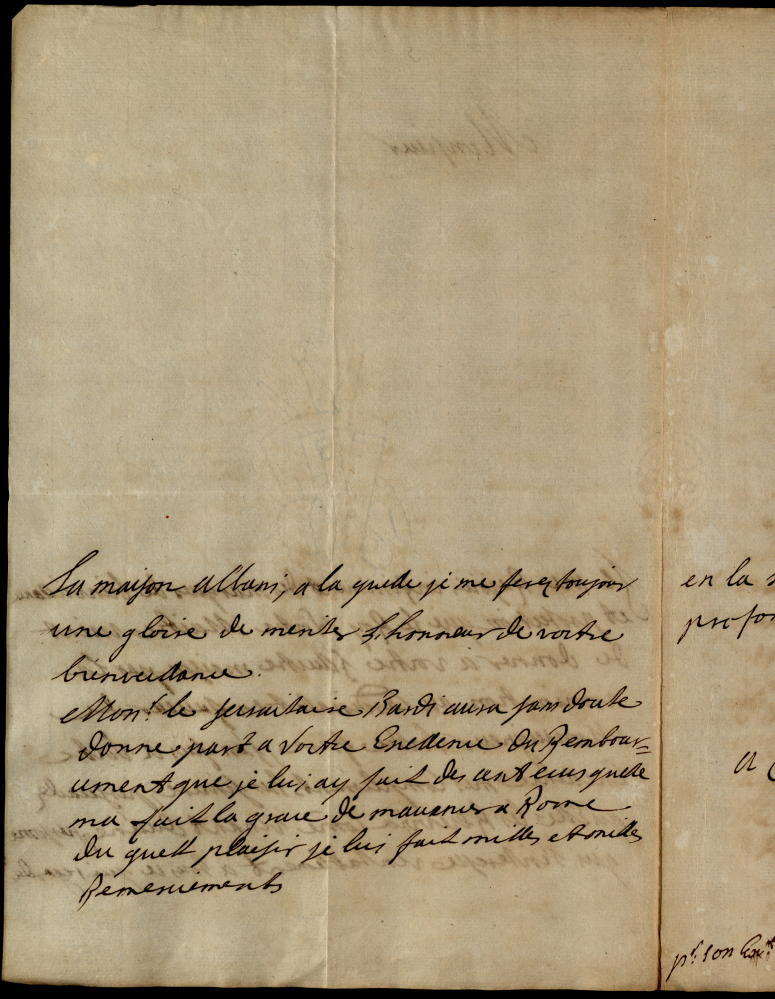 La maison Albani, a la quelle je me ferez toujour
une gloire de meriter L'honneur de vostre
bienveillance.
Mon.r le secraitaire Bardi aura sans doute
donne part a Vostre Excellence du Rembour=
cement que je lui ay fait des cent ecus quelle
ma fait la grace de mavancer a Rome
du quell plaisir je lui fait milles et milles
Remerciements
en la
profon
a
p.r son Exc.